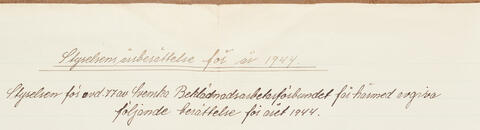 Styrelsens årsberättelse för år 1944.
Styrelsen för avd. 77 av Svenska Beklädnadsarbetarförbundet får härmed avgiva
följande berättelse för året 1944.